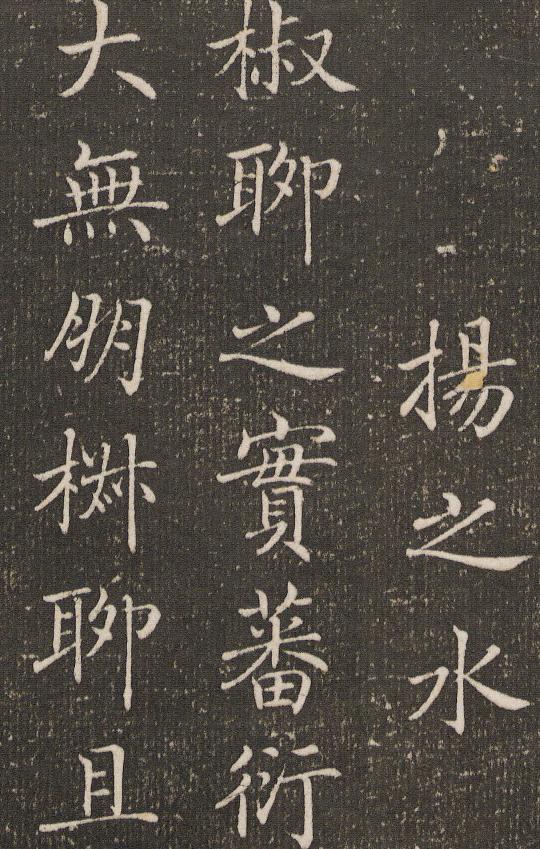 揚之水
椒聊之實蕃衍
大無朋椒聊且